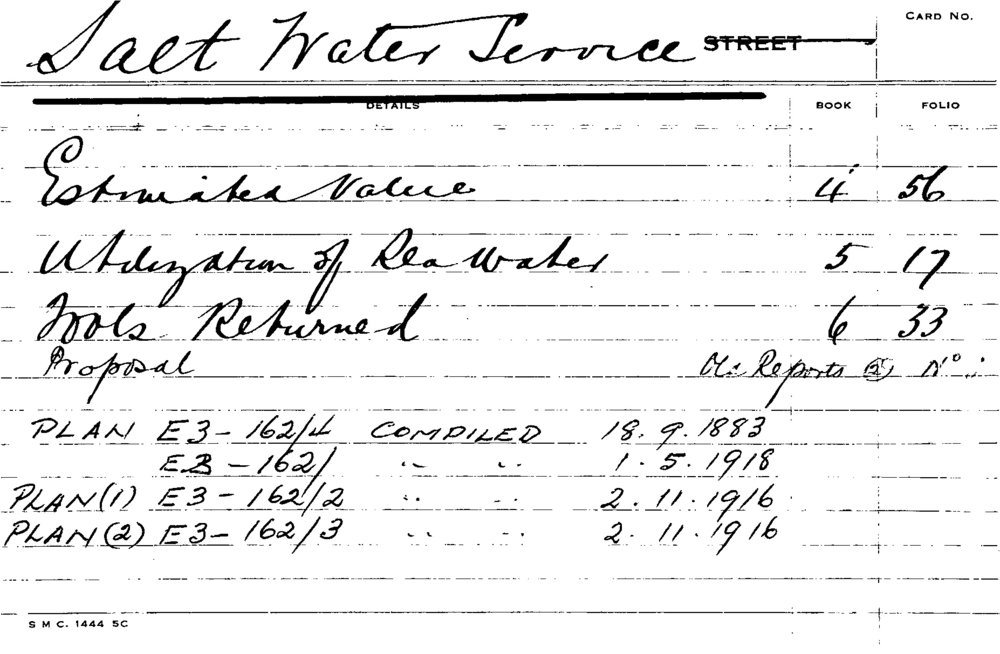 Salt Water Service STREET CARD No.
DETAILS BOOK FOLIO
Estimated Value 4 56
Utilization of Sea Water 5 17
Tools Returned 6 33
Proposal Reports Nº
PLAN E3-162/4 COMPILED 18.9.1883
E3-162/ " " 1.5.1918
PLAN (1) E3-162/2 " " 2.11.1916
PLAN (2) E3-162/3 " " 2.11.1916
S M C. 1444 5C